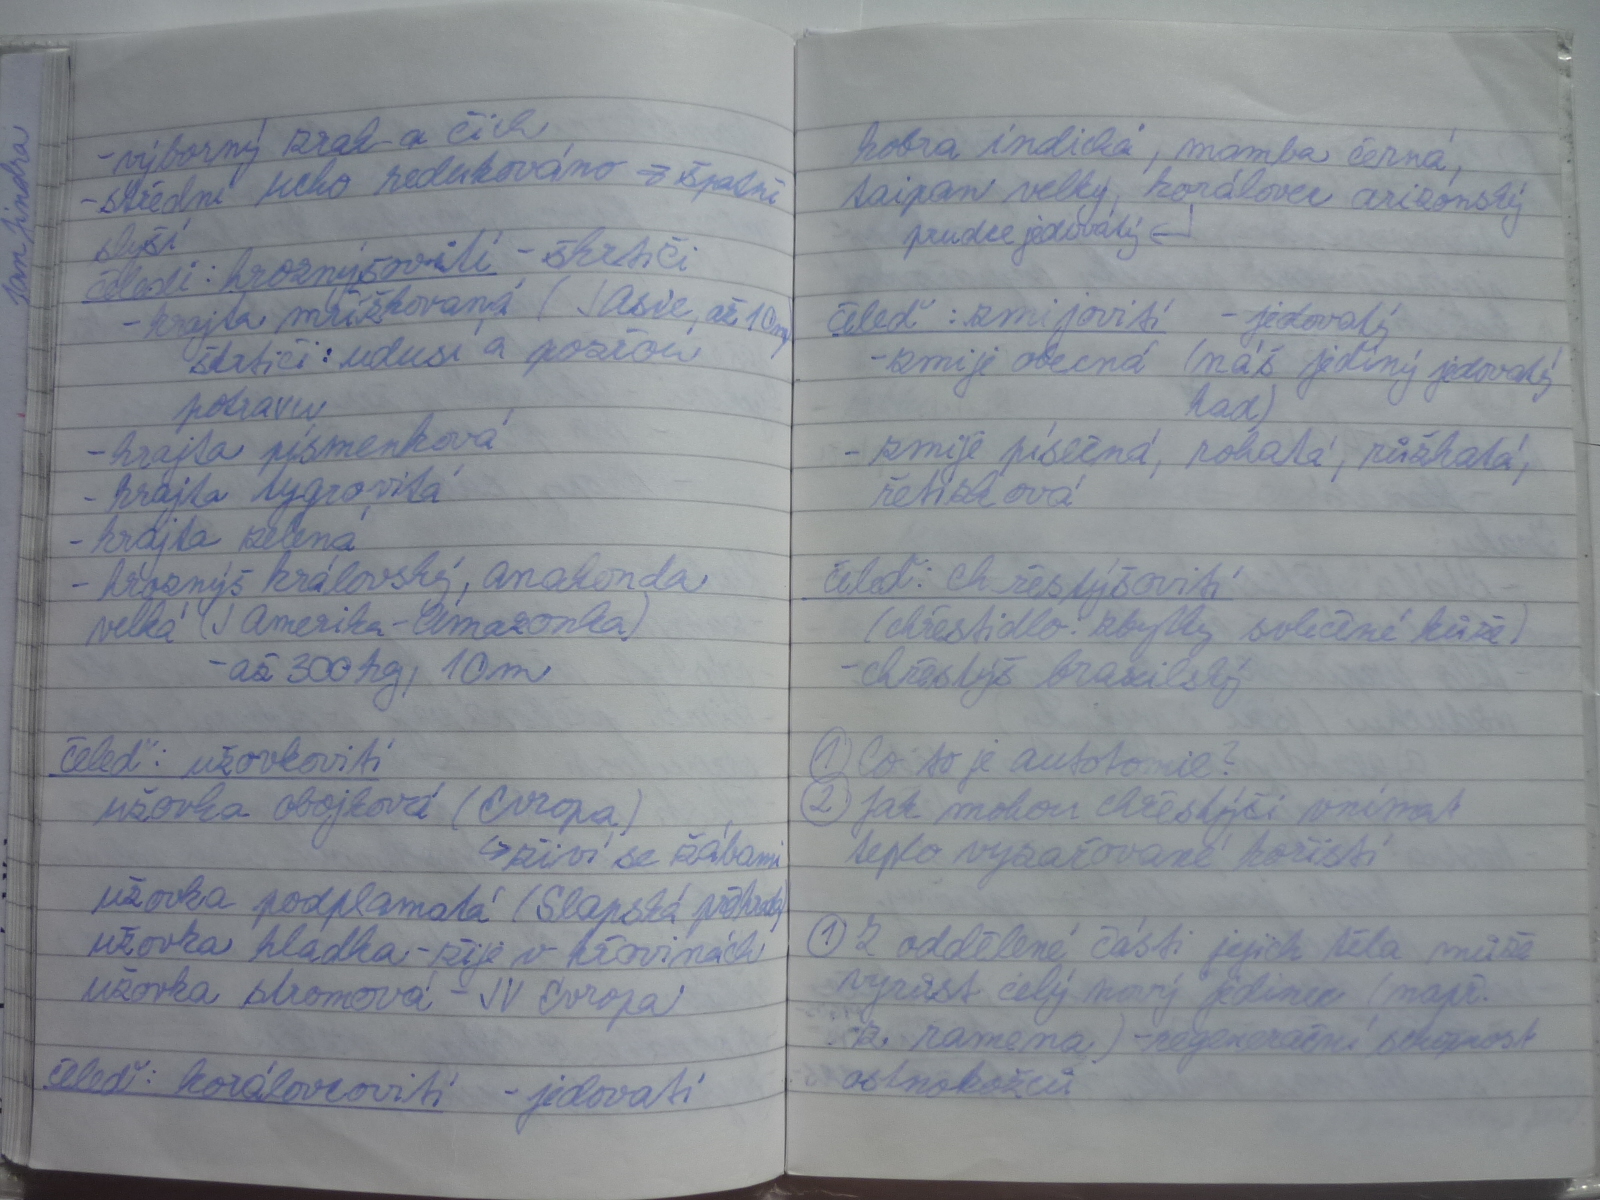 - výborný zrak a čich
- střední ucho redukováno → špatně
slyší
čeleď: hroznýšovití - škrtiči
- krajta mřížkovaná (J Asie, až 10m)
škrtiči: udusí a pozřou
potravu
- krajta písmenková
- krajta tygrovitá
- krajta zelená
- hroznýš královský, anakonda
velká (J Amerika - Amazonka)
- až 300kg, 10m
čeleď: užovkovití
užovka obojková (Evropa)
↳ živí se žábami
užovka podplamatá (Slapská přehrada)
užovka hladká - žije v křovinách
užovka stromová - JV Evropa
čeleď: korálovcovití - jedovatí
kobra indická, mamba černá,
taipan velký, korálovec arizonský
prudce jedovatý ↵
čeleď: zmijovití - jedovatý
- zmije obecná (náš jediný jedovatý
had)
- zmije písečná, rohatá, růžkatá,
řetízková
čeleď: chřestýšovití
(chřestidlo: zbytky svlečené kůže)
- chřestýš brazilský
① Co to je autotomie?
② Jak mohou chřestýši vnímat
teplo vyzařované kořistí
① Z oddělené části jejich těla může
vyrůst celý nový jedinec (např.
z. ramena) - regenerační schopnost
ostnokožců
Jan Jindra